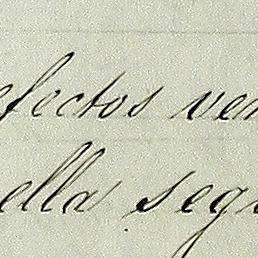 efectos ven
ella segu